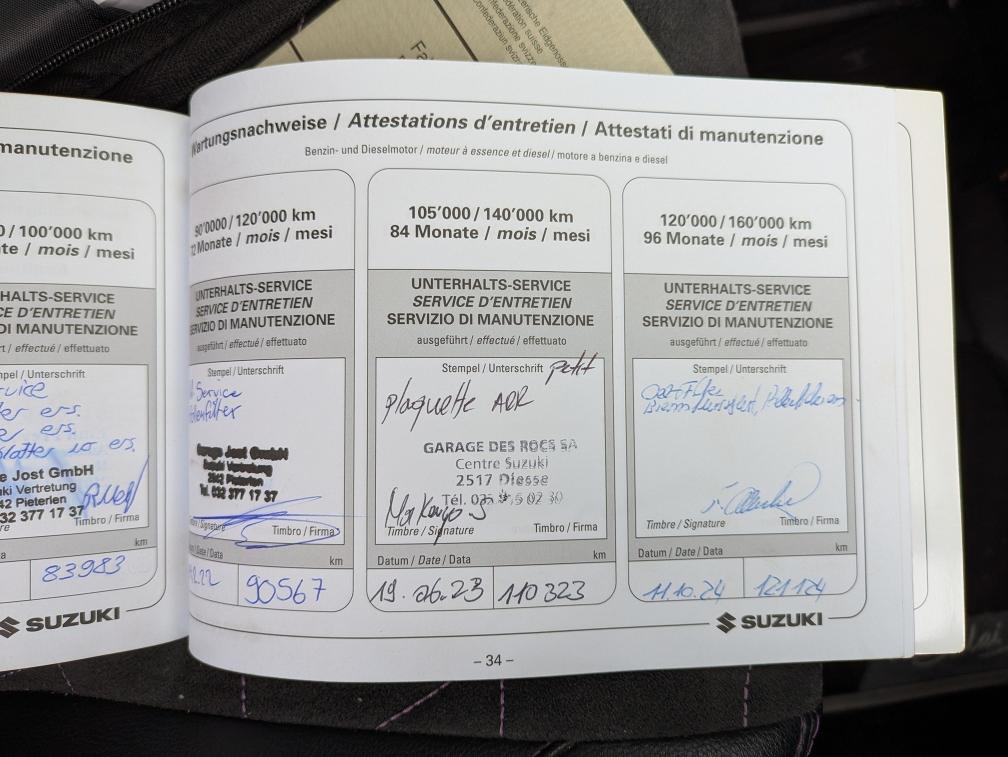 Fa
zerische Eidgenoss
fédération suisse
Confederazione svizze
Confederaziun svizra
manutenzione
0/100'000 km
te / mois / mesi
HALTS-SERVICE
CE D'ENTRETIEN
IO DI MANUTENZIONE
rt / effectué / effettuato
mpel / Unterschrift
rvice
ers.
ers.
ers.
e Jost GmbH
uki Vertretung
42 Pieterlen
32 377 17 37
Timbro / Firma
re
km
83983
SUZUKI
Wartungsnachweise / Attestations d'entretien / Attestati di manutenzione
Benzin- und Dieselmotor / moteur à essence et diesel / motore a benzina e diesel
90'0000 / 120'000 km
72 Monate / mois / mesi
UNTERHALTS-SERVICE
SERVICE D'ENTRETIEN
SERVIZIO DI MANUTENZIONE
ausgeführt / effectué / effettuato
Stempel / Unterschrift
Service
Garage Jost GmbH
Suzuki Vertretung
2542 Pieterlen
Tel. 032 377 17 37
Timbre / Signature
Timbro / Firma
Datum / Date / Data
km
90567
105'000 / 140'000 km
84 Monate / mois / mesi
UNTERHALTS-SERVICE
SERVICE D'ENTRETIEN
SERVIZIO DI MANUTENZIONE
ausgeführt / effectué / effettuato
Stempel / Unterschrift
petit
plaquette
GARAGE DES ROCS SA
Centre Suzuki
2517 Diesse
Timbre / Signature
Timbro / Firma
Datum / Date / Data
km
19.06.23
110323
120'000 / 160'000 km
96 Monate / mois / mesi
UNTERHALTS-SERVICE
SERVICE D'ENTRETIEN
SERVIZIO DI MANUTENZIONE
ausgeführt / effectué / effettuato
Stempel / Unterschrift
Timbre / Signature
Timbro / Firma
Datum / Date / Data
km
11.10.24
121124
SUZUKI
– 34 –